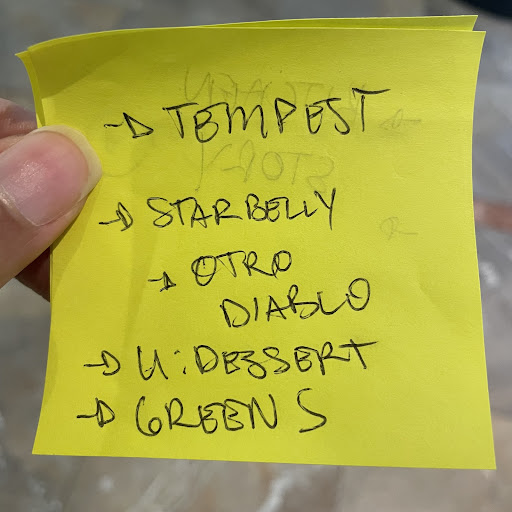 → TEMPEST
→ STARBELLY
→ OTRO
DIABLO
→ U:DESSERT
→ GREENS